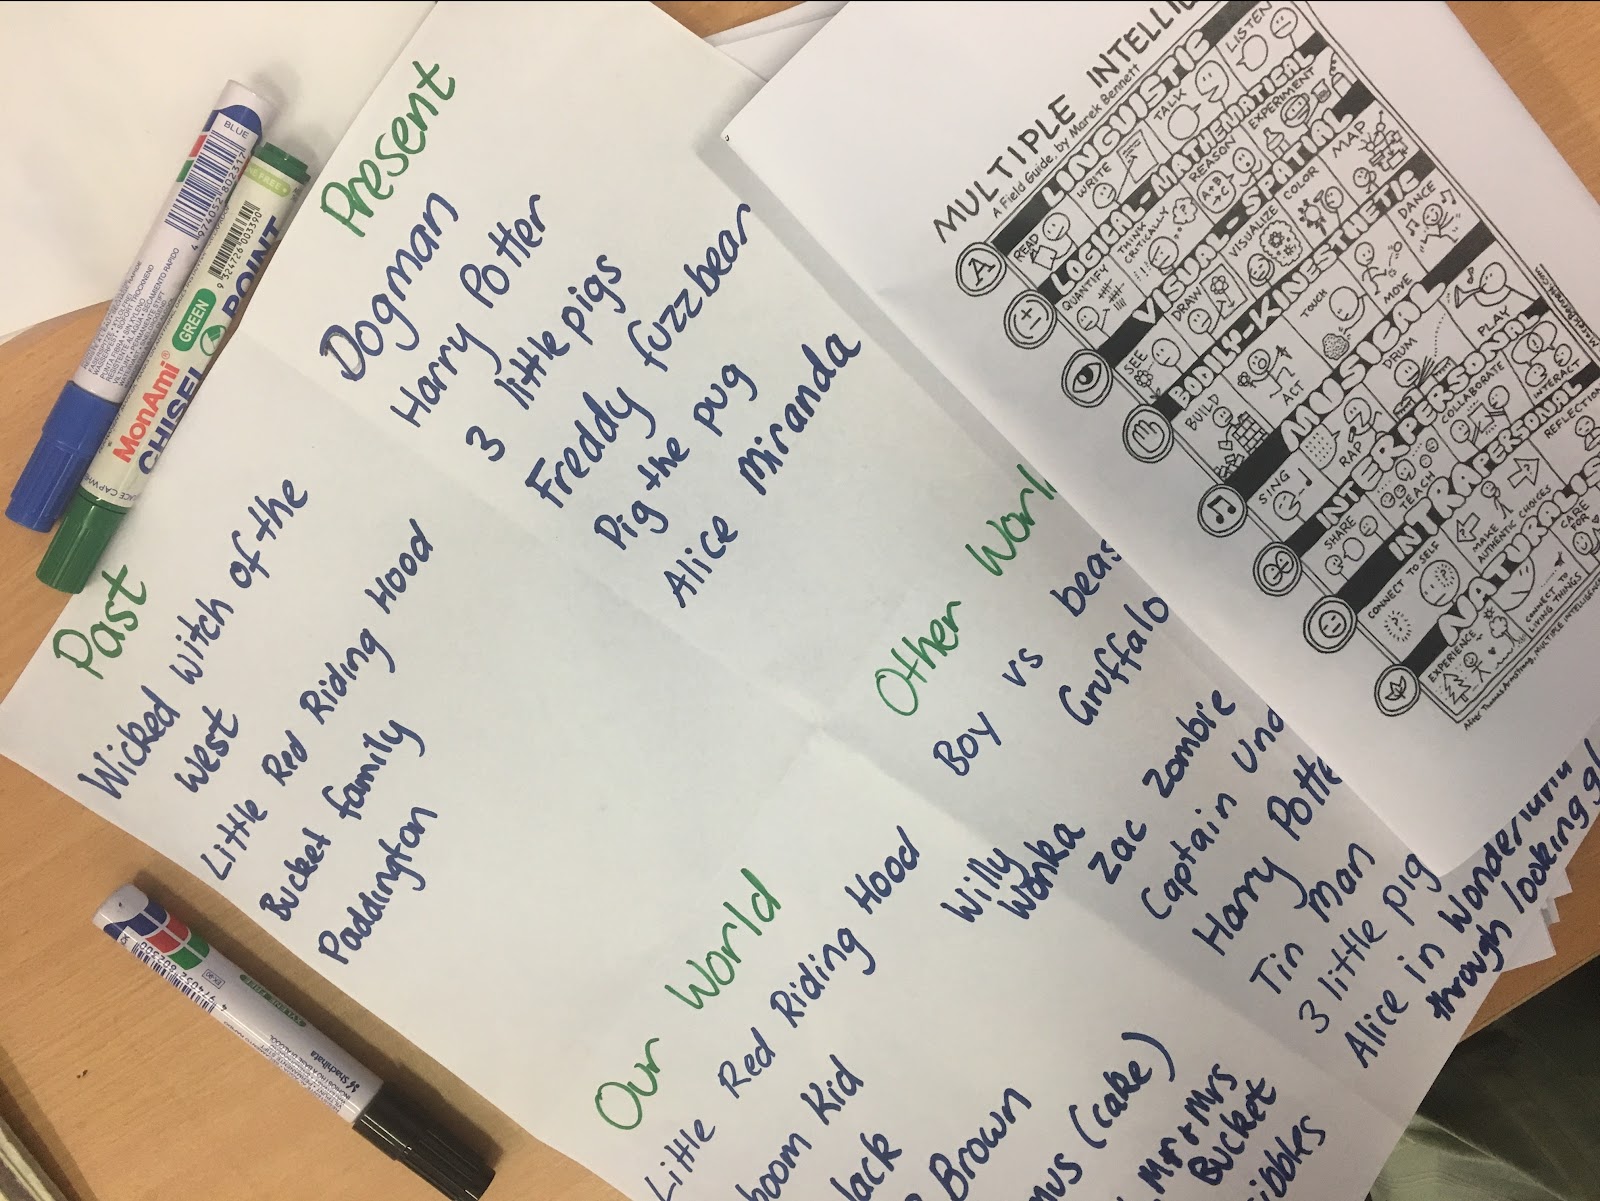 Present
Dogman
Harry Potter
3 little pigs
Freddy fuzzbear
Pig the pug
Alice Miranda
Past
Wicked Witch of the
West
Little Red Riding Hood
Bucket family
Paddington
Other Worl
Boy vs beas
Gruffalo
Willy
Wonka
Zac Zombie
Captain Und
Harry Potte
Tin Man
3 little pig
Alice in Wonderland
through looking gl
Our World
Little Red Riding Hood
boom Kid
Jack
Brown
mus (cake)
Mr + Mrs
Bucket
ibbles
MULTIPLE INTELLI
A Field Guide, by Marek Bennett
LINGUISTIC
READ
WRITE
TALK
LISTEN
LOGICAL-MATHEMATICAL
QUANTIFY
THINK CRITICALLY
REASON
EXPERIMENT
VISUAL-SPATIAL
SEE
DRAW
VISUALIZE
COLOR
MAP
BODILY-KINESTHETIC
BUILD
ACT
TOUCH
MOVE
DANCE
MUSICAL
SING
RAP
DRUM
PLAY
INTERPERSONAL
SHARE
TEACH
COLLABORATE
INTERACT
INTRAPERSONAL
CONNECT TO SELF
MAKE
AUTHENTIC CHOICES
REFLECTION
NATURALIS
EXPERIENCE
CONNECT TO
LIVING THINGS
CARE
FOR
After Thomas Armstrong, MULTIPLE INTELLIGENCE
A
BLUE
4 974052 802317
GREEN
MonAmi
CHISEL
POINT
9 324726 003390
Shachihata